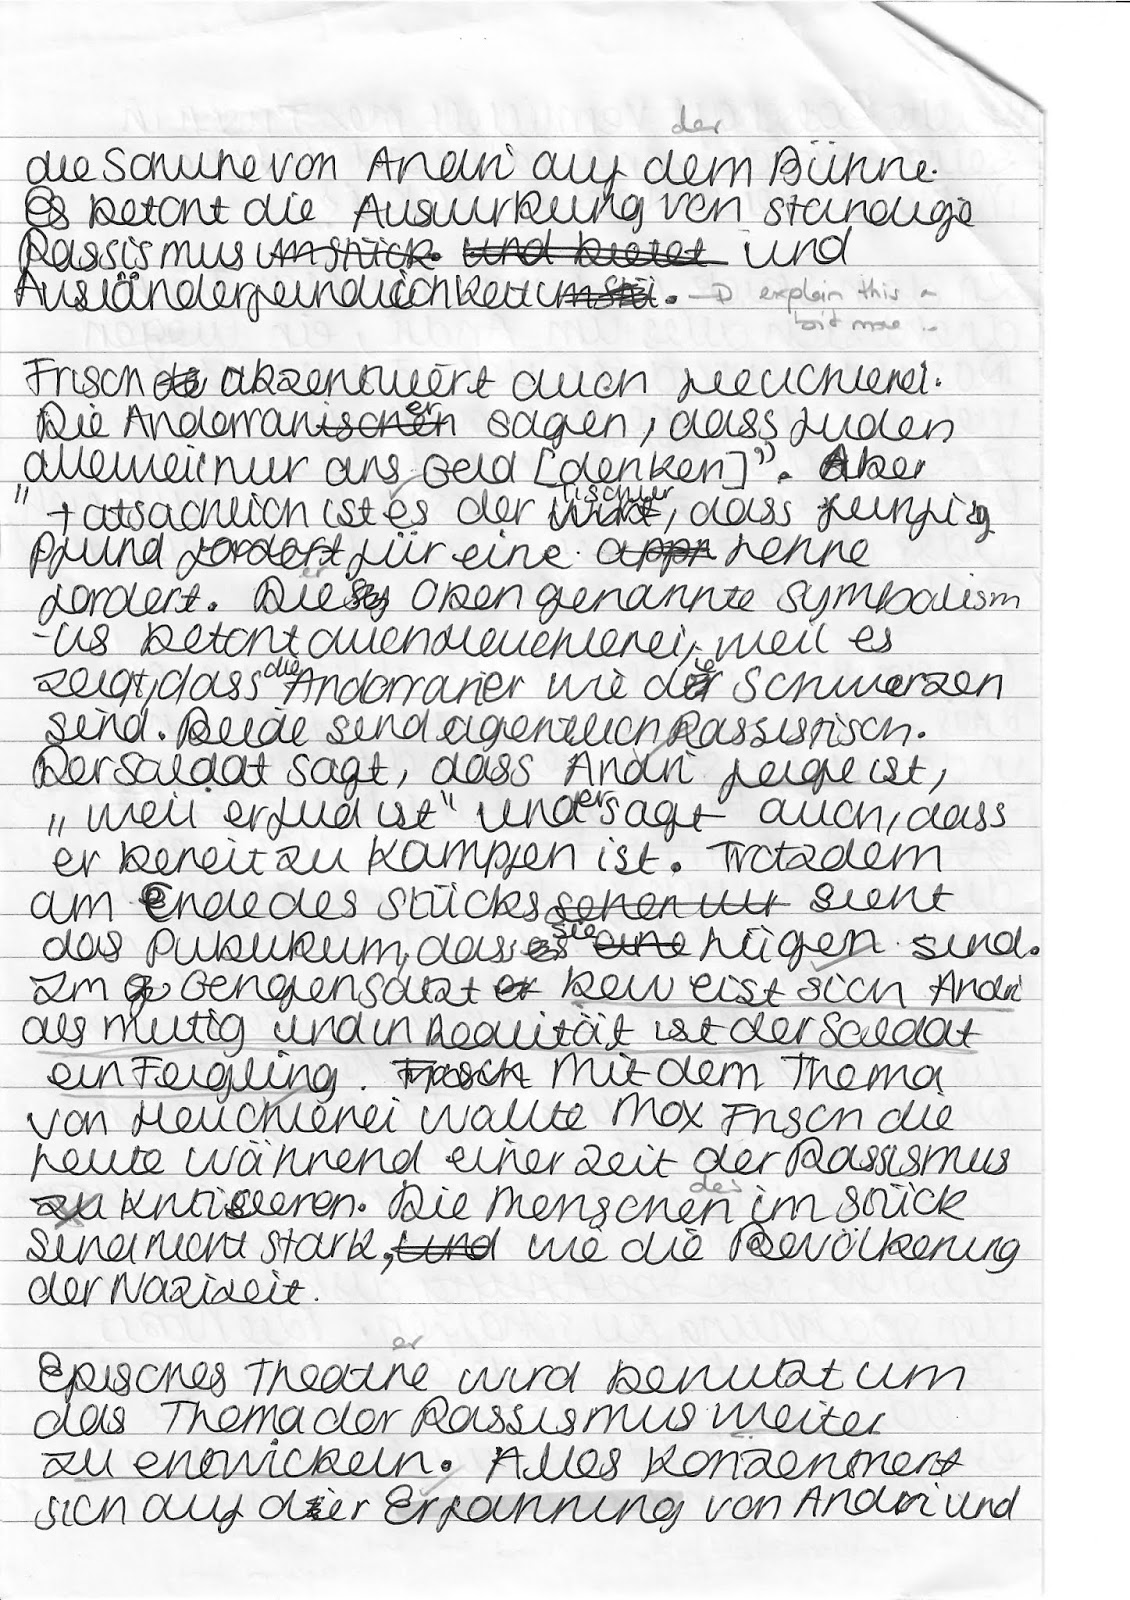 der
die Schuhe von Andri auf dem Bühne.
Es betont die Auswirkung von ständige
Rassismus im stück. und bietet und
Ausländerfeindlichkeit im stü. → explain this a
bit more :-
Frisch de akzentuiert auch Heuchlerei.
er
Die Andorranischen sagen, dass Juden
alleweil nur ans Geld [denken]". Aber
Tischler
"tatsächlich ist es der wird, dass fünfzig
Pfund fordert für eine appr Lehre
er
fordert. Dies oben genannte Symbolism
-us betont auch Heuchlerei, weil es
die
zeigt, dass Andorraner wie die Schwarzen
sind. Beide sind eigentlich Rassistisch.
Der Soldat sagt, dass Andri feige ist,
er
„weil er Jud ist" und sagt auch, dass
er bereit zu kämpfen ist. Trotzdem
am Ende des Stücks sehen wir sieht
sie
das Publikum, dass es eine lügen sind.
Im Gengensatzt er beweist sich Andri
als mutig und in Realität ist der Soldat
ein Feigling. Frisch Mit dem Thema
von Heuchlerei wollte Max Frisch die
heute während einer Zeit der Rassismus
des
zu kritisieren. Die Menschen im Stück
sind nicht stark, und wie die Bevölkerung
der Nazizeit.
er
Episches Theatre wird benutzt um
das Thema der Rassismus weiter
zu entwickeln. Alles konzentriert
sich auf der Erfahnung von Andri und